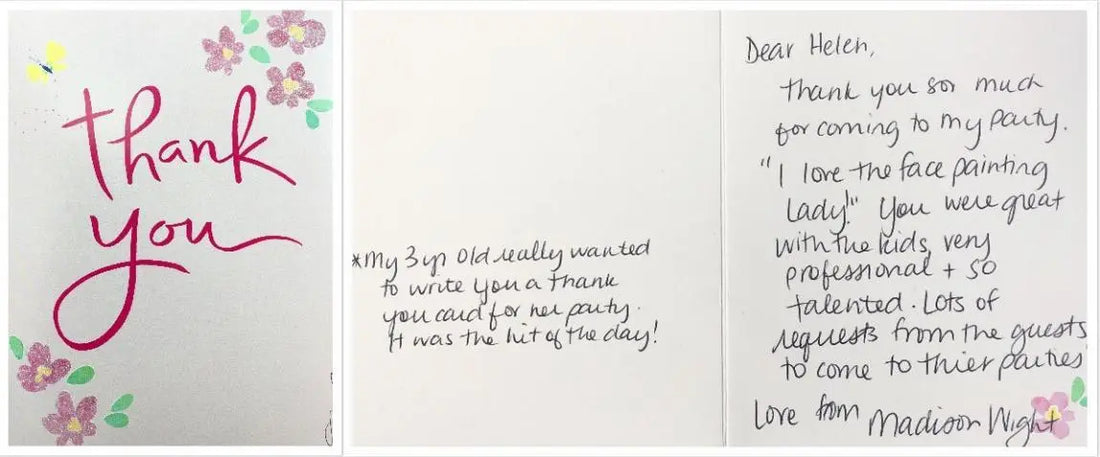 thank
you
*My 3 yr old really wanted
to write you a thank
you card for her party.
It was the hit of the day!
Dear Helen,
Thank you sor much
for coming to my party.
"I love the face painting
Lady!" You were great
with the kids, very
professional + so
talented. Lots of
requests from the guests
to come to thier parties
Love from Madison Wight